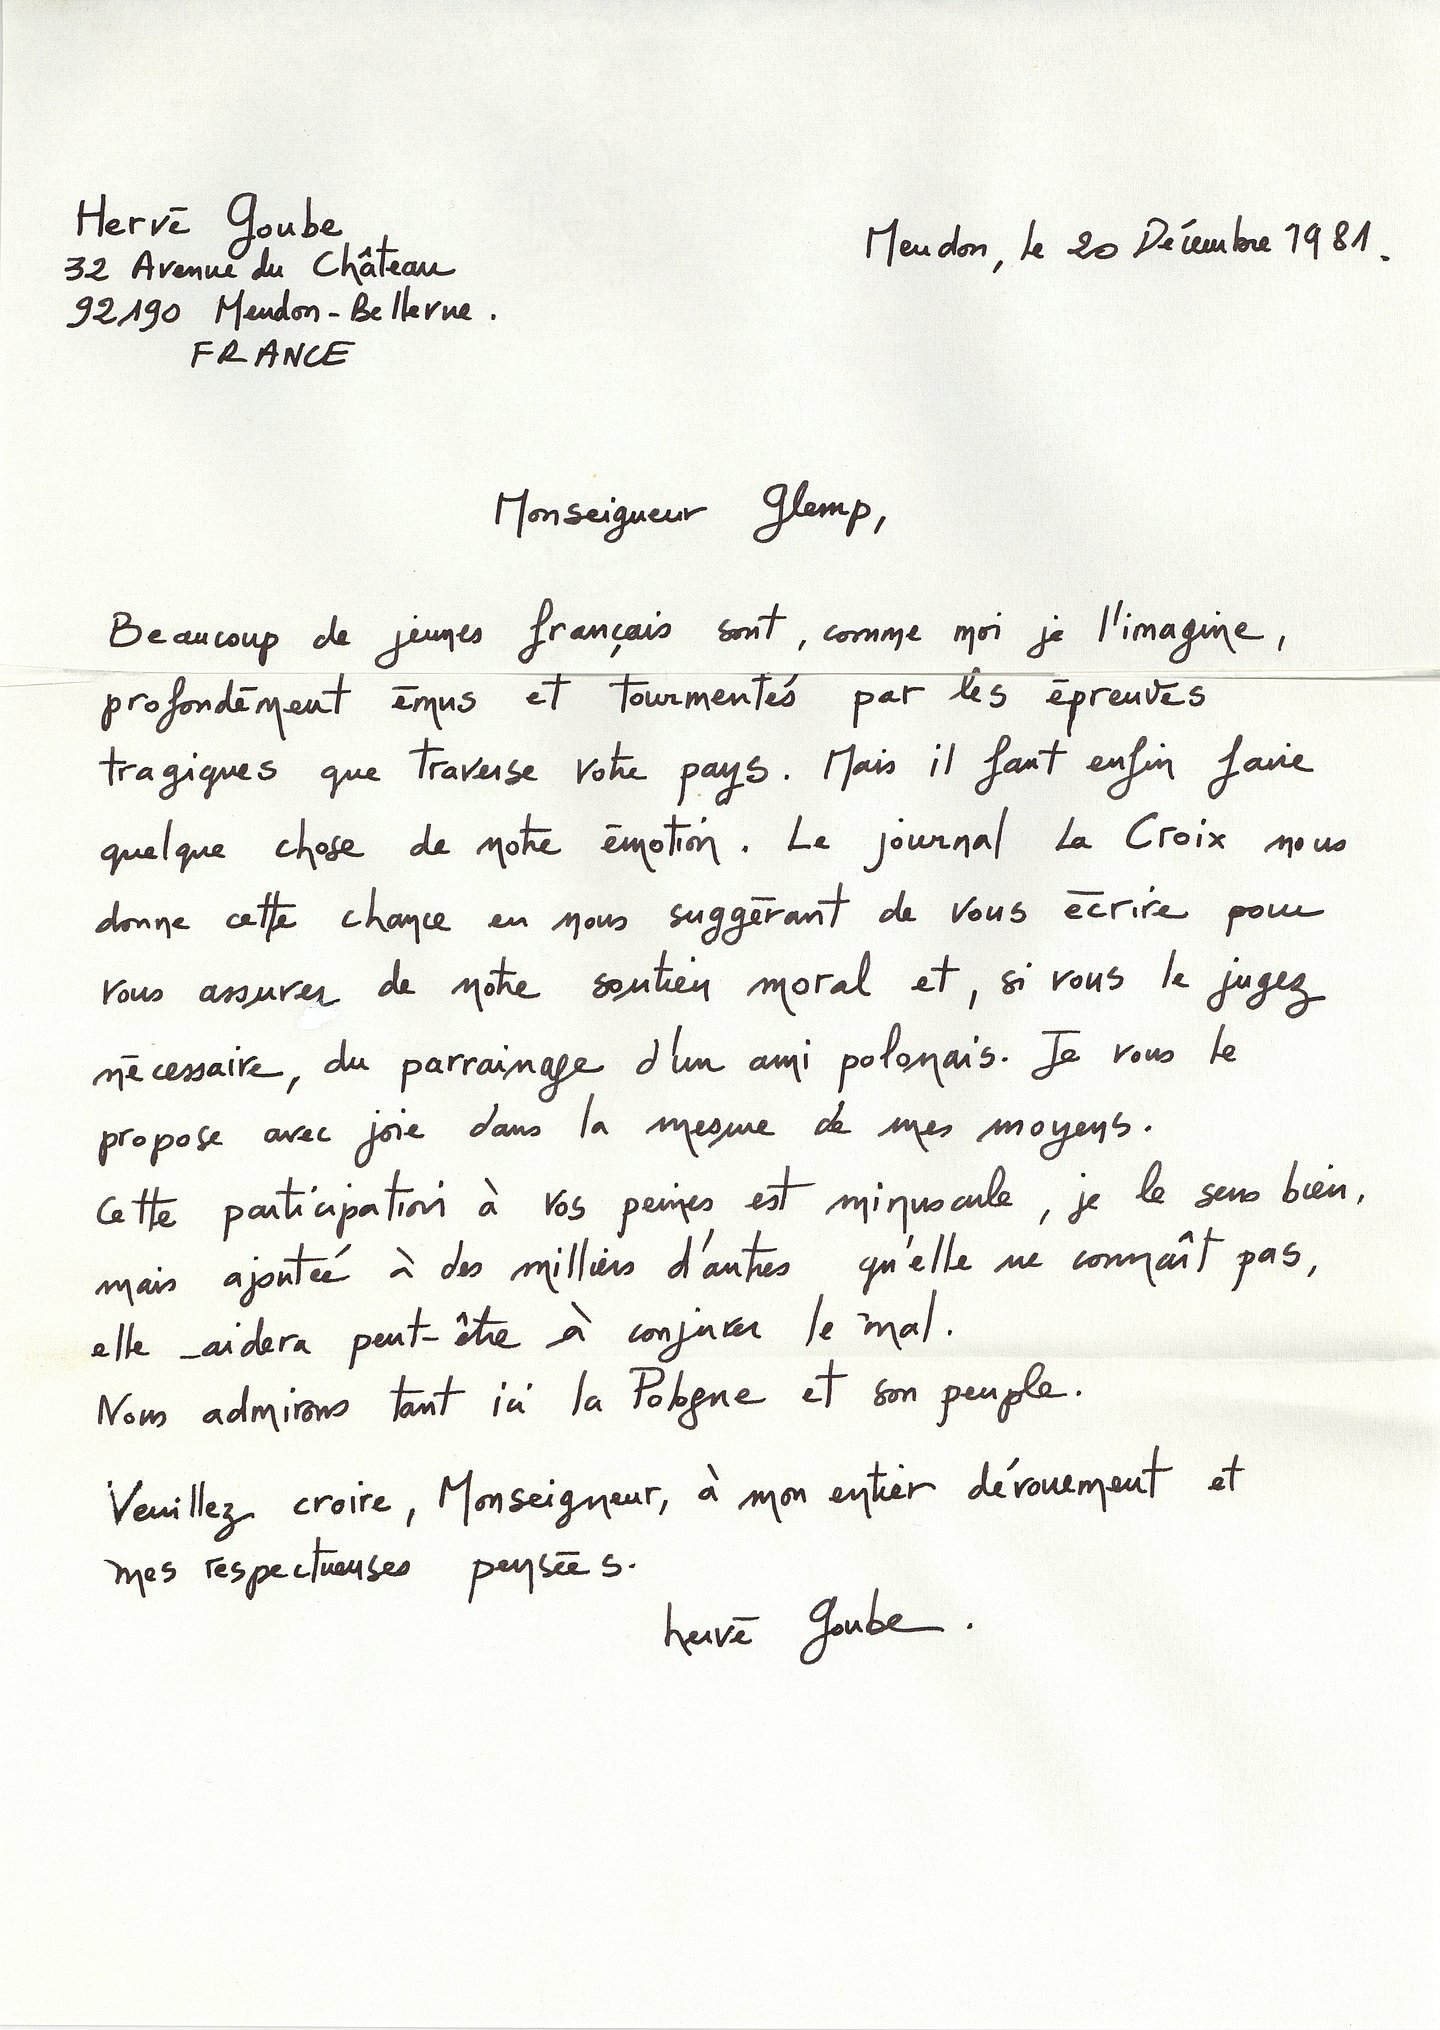 Hervé Goube
32 Avenue du Château
92190 Meudon-Bellevue.
FRANCE
Meudon, le 20 Décembre 1981.
Monseigneur Glemp,
Beaucoup de jeunes français sont, comme moi je l'imagine,
profondément émus et tourmentés par les épreuves
tragiques que traverse votre pays. Mais il faut enfin faire
quelque chose de notre émotion. Le journal La Croix nous
donne cette chance en nous suggérant de vous écrire pour
vous assurer de notre soutien moral et, si vous le jugez
nécessaire, du parrainage d'un ami polonais. Je vous le
propose avec joie dans la mesure de mes moyens.
Cette participation à vos peines est minuscule, je le sens bien,
mais ajoutée à des milliers d'autres qu'elle ne connaît pas,
elle aidera peut-être à conjurer le mal.
Nous admirons tant ici la Pologne et son peuple.
Veuillez croire, Monseigneur, à mon entier dévouement et
mes respectueuses pensées.
hervé Goube.